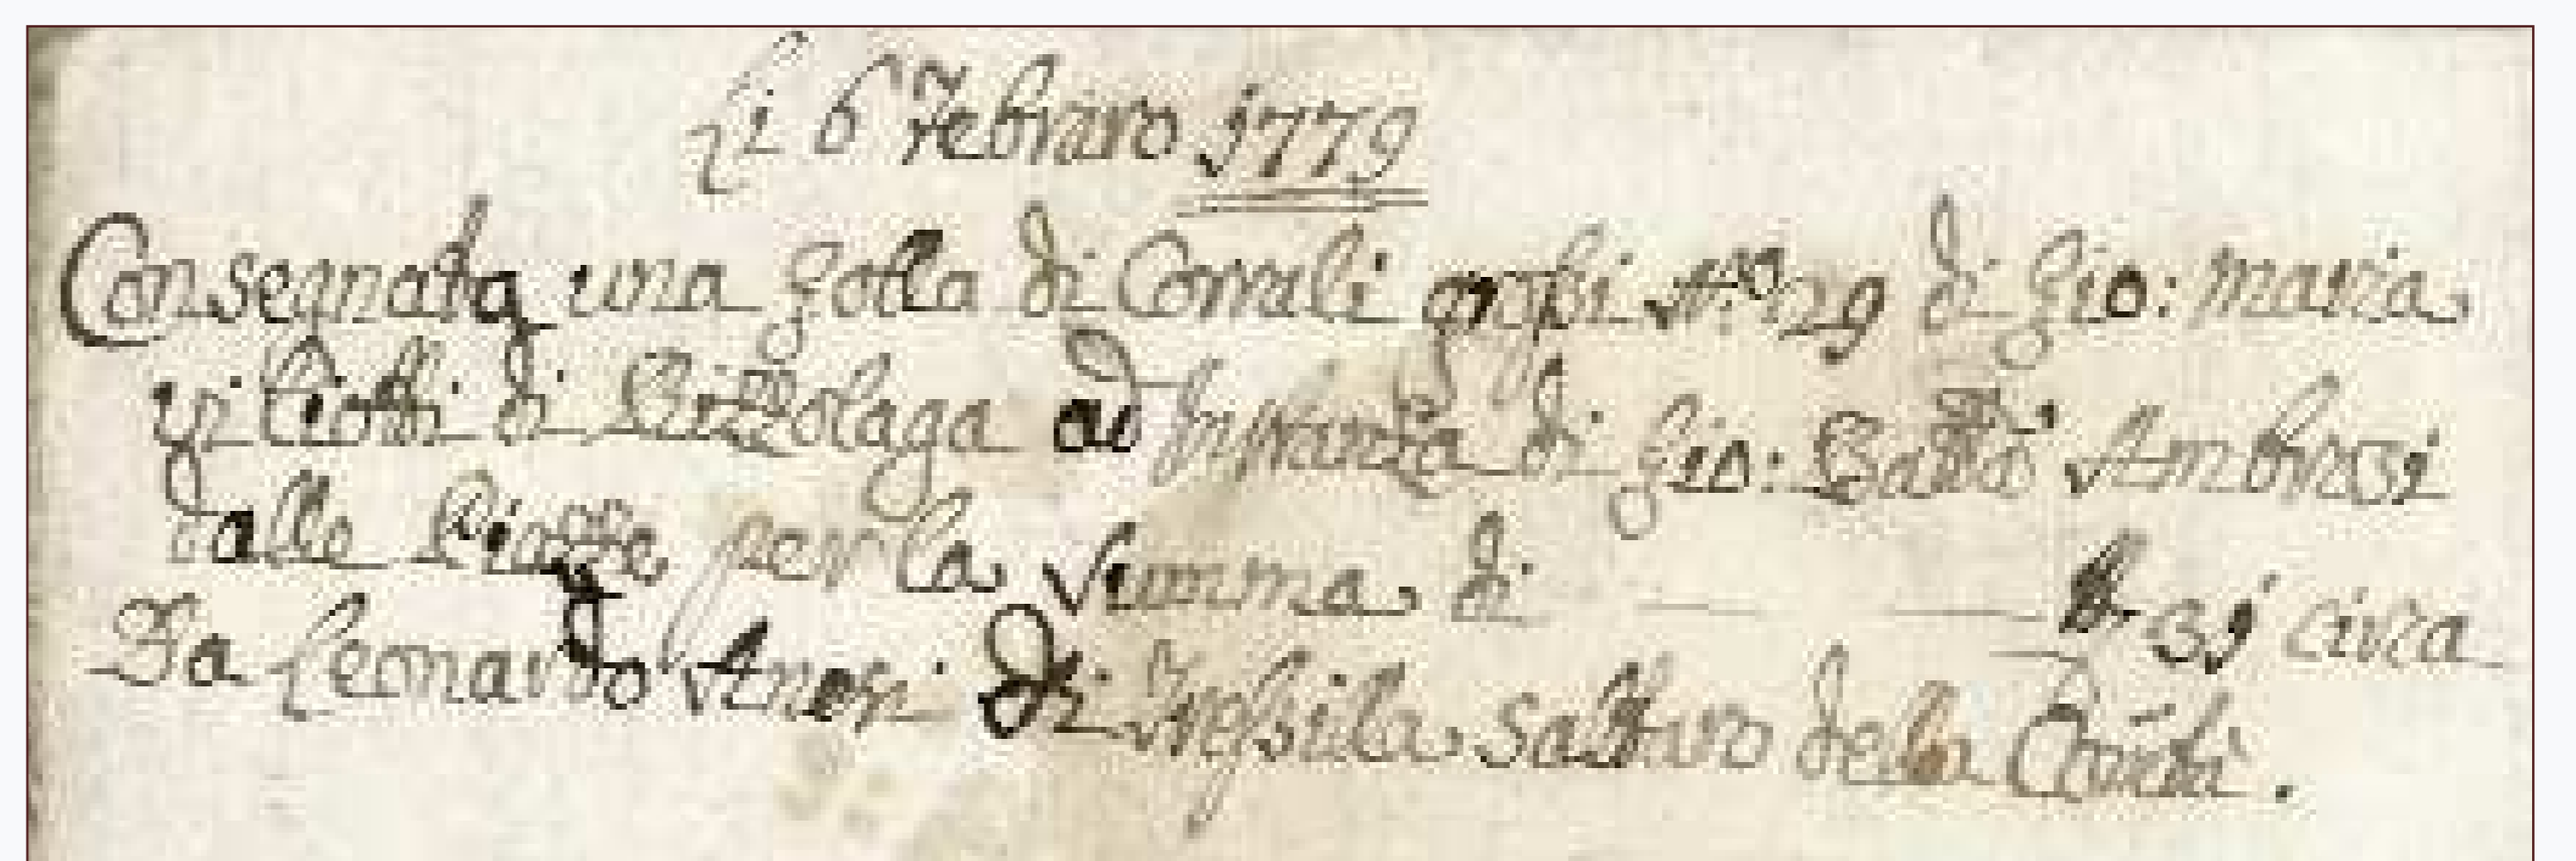 Li 6 Febraro 1779
Consegnata una Golla di Corrali grossi n.º 29 di Gio: Maria
di Pizzolaga ad Instanza di Gio: Batta Ambrosi
dalle Piazze per la Summa di — — — 31 circa
Da Lenardo di saltaro della Comtà.